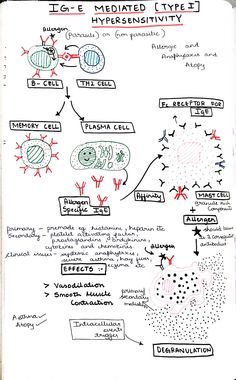 IG-E MEDIATED [TYPE I]
HYPERSENSITIVITY
Allergen
(Parasitic) or (non parasitic)
Allergic and
Anaphylaxis and
Atopy
B-CELL
TH2 CELL
FC RECEPTOR FOR
IgE
MEMORY CELL
PLASMA CELL
Allergen
Specific IgE
Affinity
MAST CELL
Granule rich
Allergen
should bind
to 2 
antibodies
Primary - premade eg histamine, heparin etc
Secondary - platelet activating factor,
prostaglandins, bradykinins,
cytokines and chemokines
Clinical issues - systemic anaphylaxis,
severe asthma, hay fever,
eczema etc
Allergen
EFFECTS :-
> Vasodilation
> Smooth Muscle
Contraction
primary/
secondary
mediators
Asthma
Atopy
Intracellular
events
triggers
DEGRANULATION